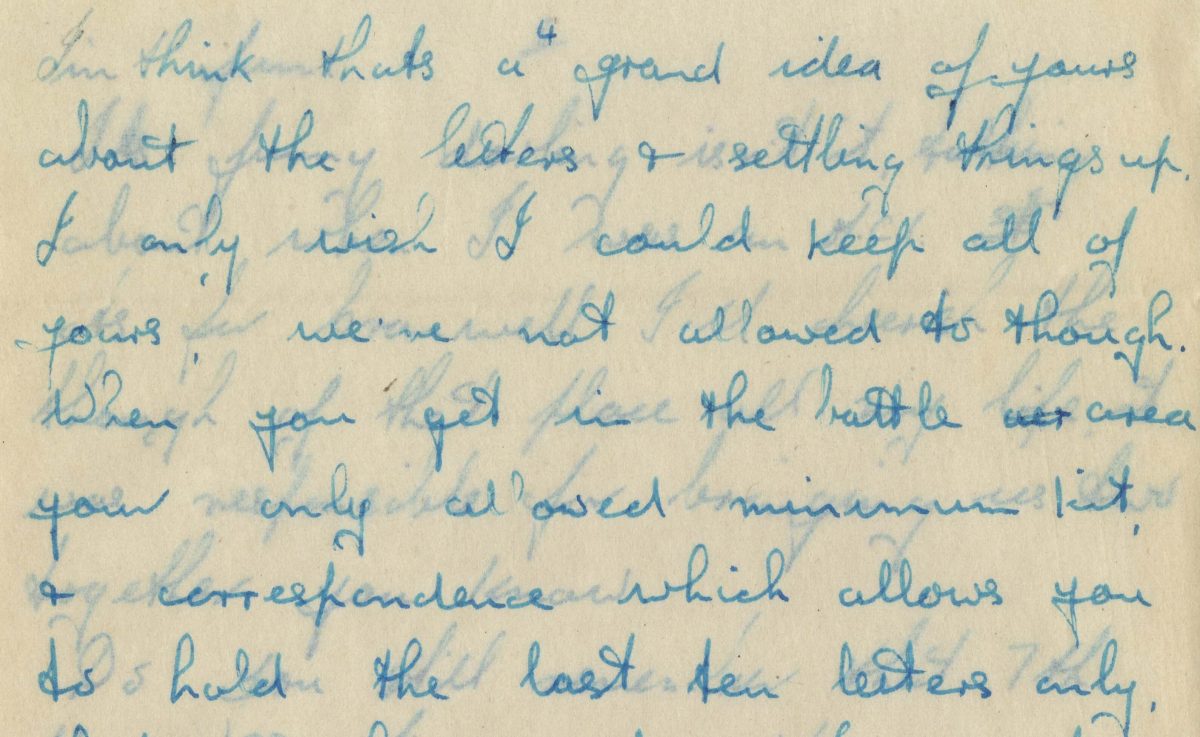 4
think thats a grand idea of yours
about the letters & settling things up.
I only wish I could keep all of
yours, we're not allowed to though.
When you get in the battle aer area
your only allowed minimum kit,
& correspondence which allows you
to hold the last ten letters only.